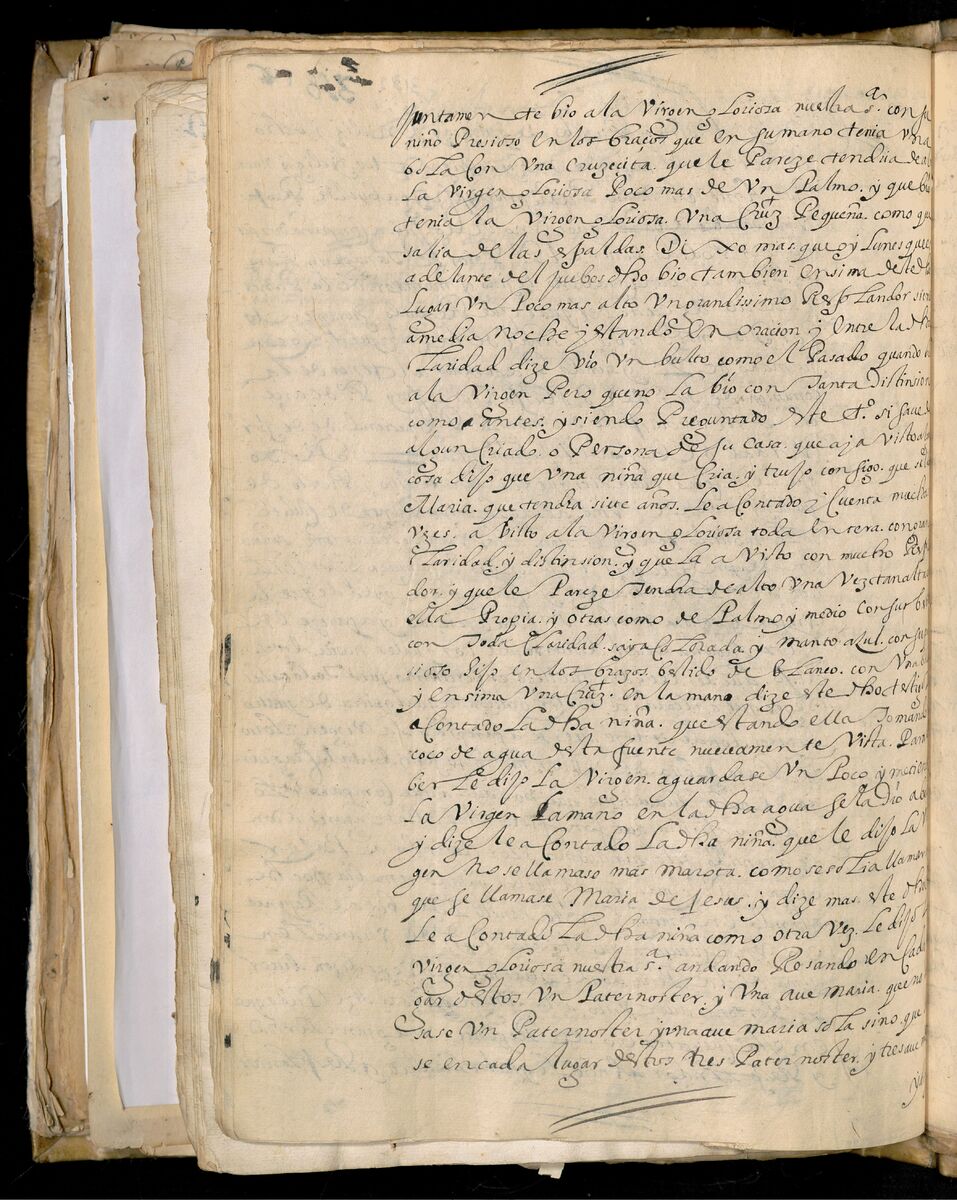 Juntamente bio a la Virgen gloriosa nuestra s.ra con su
niño Presioso en los braços que en su mano tenia una
bola con una cruzecita. que le Pareze tendria de al
La Virgen gloriosa Poco mas de un Palmo. y que
tenia la Virgen gloriosa. una Cruz Pequeña. como que
salia de las espaldas. Dixo mas. que oy Lunes que es
adelante del juebes dho bio tambien ensima deste dho
Lugar un Poco mas alto un grandissimo Resplandor
a media noche y estando en oracion y entre la dha
Claridad dize vio un bulto como el Pasado quando
a la Virgen Pero que no la bio con tanta distinsion
como antes. y siendo Preguntado este t.o si save de
algun Criado. o Persona de su casa. que aja visto
cosa dijo que una niña que cria. y trujo consigo. que
Maria. que tendra siete años. le a contado y cuenta muchas
vezes. a visto a la Virgen gloriosa toda entera. con gran
Claridad. y distinsion. y que la a visto con mucho
dor. y que le Pareze tendra de alto una vez tan alta
ella Propia. y otras como de Palmo y medio con su
con toda claridad. saya colorada y manto azul. con su
sioso hijo en los brazos. bestido de blanco. con una
y ensima una Cruz. en la mano dize este dho
a contado la dha niña. que estando ella tomando
coco de agua desta fuente nuevamente vista. Para
ber le dijo la Virgen. aguardase un Poco y
la Virgen la mano en la dha agua se la dio a
y dize le a contado la dha niña. que le dijo la
gen no se llamase mas marota. como se solia llamar
que se llamase Maria de Jesus. y dize mas este dho
le a contado la dha niña como otra vez. le dijo
Virgen gloriosa nuestra s.ra andando Rosando en cada
gar destos un Paternoster. y una ave maria. que no
sase un Paternoster y una ave maria sola sino. que
se en cada lugar destos tres Paternoster. y tres ave